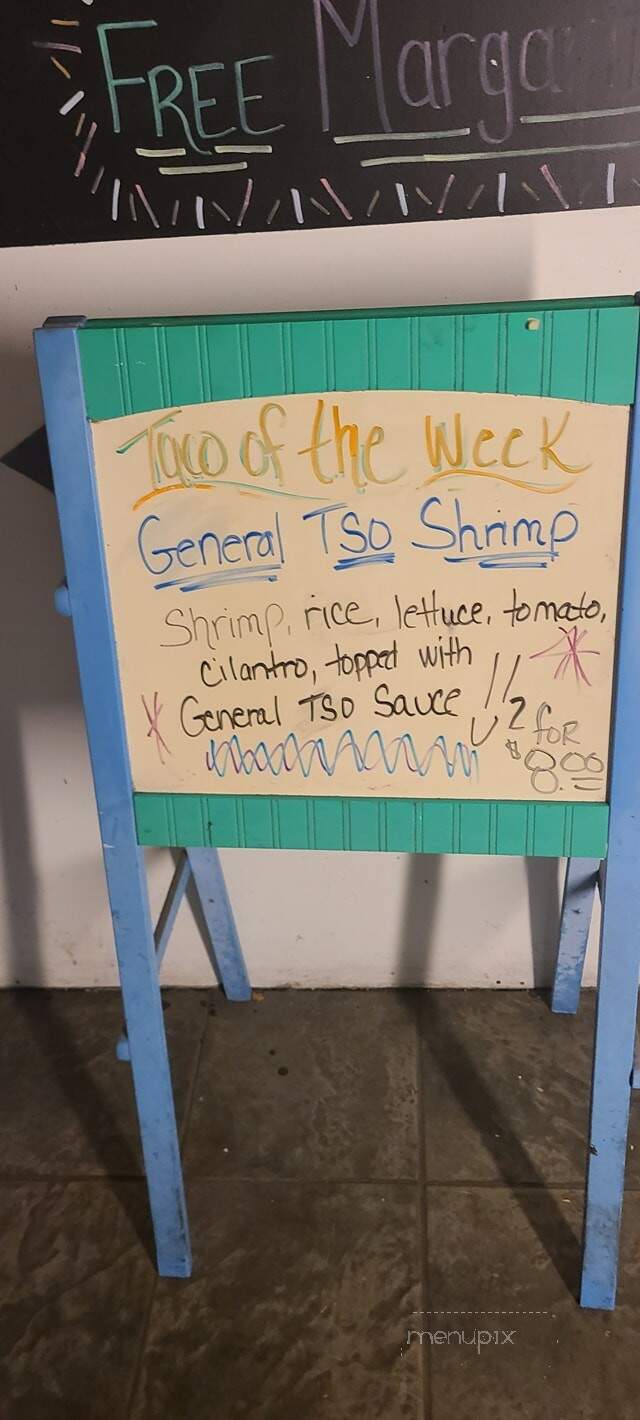 FREE Marga
Taco of the Week
General TSO Shrimp
Shrimp, rice, lettuce, tomato,
cilantro, topped with
General TSO Sauce !!
2 for
$8.00
menupix